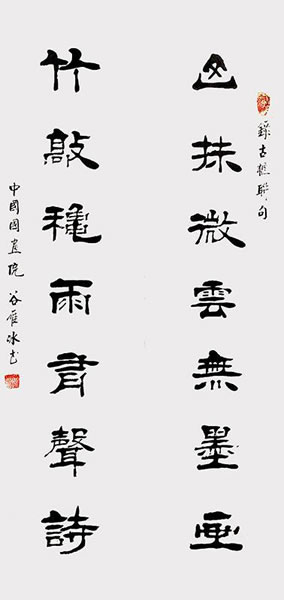 錄古楹聯句
山抹微雲無墨畫
竹敲穐雨有聲詩
中國國畫院 谷雁冰书